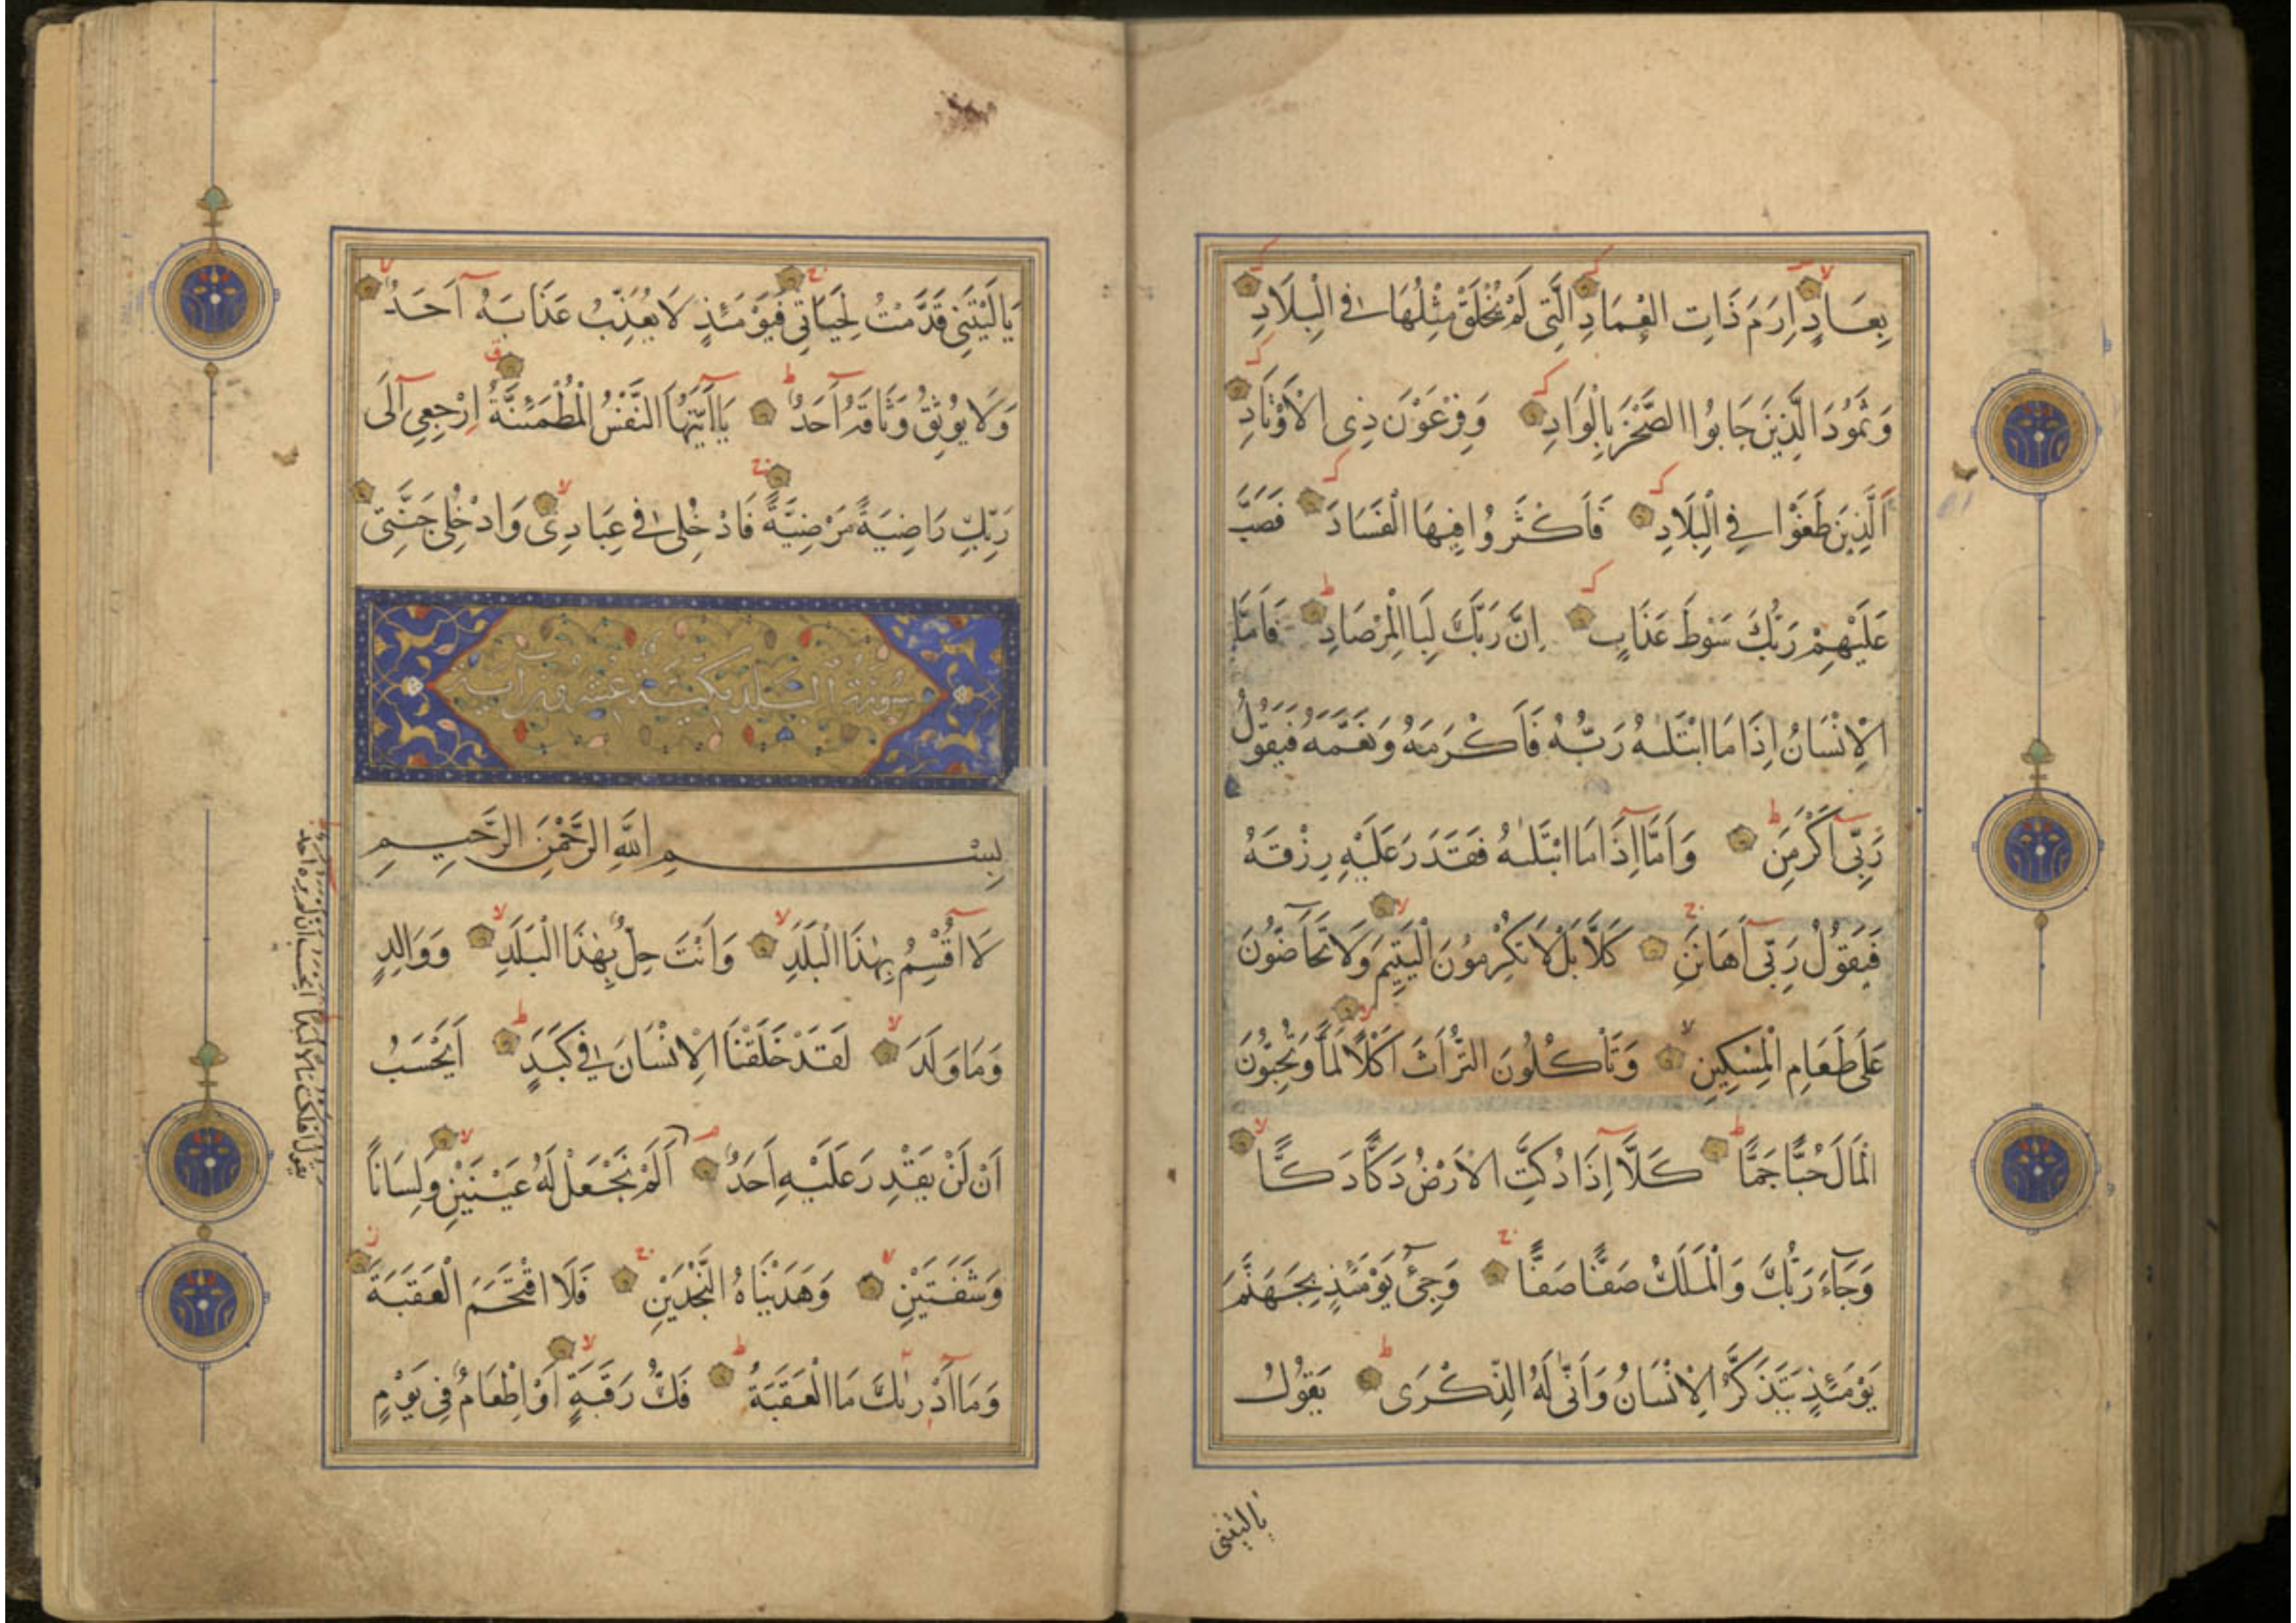 بِعَادٍ اِرَمَ ذَاتِ الْعِمَادِ الَّتِى لَمْ يُخْلَقْ مِثْلُهَا فِى الْبِلَادِ
وَثَمُودَ الَّذِينَ جَابُوا الصَّخْرَ بِالْوَادِ وَفِرْعَوْنَ ذِى الْاَوْتَادِ
اَلَّذِينَ طَغَوْا فِى الْبِلَادِ فَاَكْثَرُوا فِيهَا الْفَسَادَ فَصَبَّ
عَلَيْهِمْ رَبُّكَ سَوْطَ عَذَابٍ اِنَّ رَبَّكَ لَبِاالْمِرْصَادِ فَاَمَّا
الْاِنْسَانُ اِذَا مَا ابْتَلٰىهُ رَبُّهُ فَاَكْرَمَهُ وَنَعَّمَهُ فَيَقُولُ
رَبِّى اَكْرَمَنِ وَاَمَّا اِذَا مَا ابْتَلٰىهُ فَقَدَرَ عَلَيْهِ رِزْقَهُ
فَيَقُولُ رَبِّى اَهَانَنِ كَلَّا بَلْ لَا تُكْرِمُونَ الْيَتِيمَ وَلَا تَحَاضُّونَ
عَلَى طَعَامِ الْمِسْكِينِ وَتَأْكُلُونَ التُّرَاثَ اَكْلًا لَمًّا وَتُحِبُّونَ
الْمَالَ حُبًّا جَمًّا كَلَّا اِذَا دُكَّتِ الْاَرْضُ دَكًّا دَكًّا
وَجَاءَ رَبُّكَ وَالْمَلَكُ صَفًّا صَفًّا وَجِئَ يَوْمَئِذٍ بِجَهَنَّمَ
يَوْمَئِذٍ يَتَذَكَّرُ الْاِنْسَانُ وَاَنَّى لَهُ الذِّكْرَى يَقُولُ
يا ليتنى
يَا لَيْتَنِى قَدَّمْتُ لِحَيَاتِى فَيَوْمَئِذٍ لَا يُعَذِّبُ عَذَابَهُ اَحَدٌ
وَلَا يُوثِقُ وَثَاقَهُ اَحَدٌ يَا اَيَّتُهَا النَّفْسُ الْمُطْمَئِنَّةُ اِرْجِعِى اِلَى
رَبِّكِ رَاضِيَةً مَرْضِيَّةً فَادْخُلِى فِى عِبَادِى وَادْخُلِى جَنَّتِى
سُورَةُ الْبَلَدِ مَكِّيَّةٌ عِشْرُونَ اٰيَة
بِسْمِ اللّٰهِ الرَّحْمٰنِ الرَّحِيمِ
لَا اُقْسِمُ بِهٰذَا الْبَلَدِ وَاَنْتَ حِلٌّ بِهٰذَا الْبَلَدِ وَوَالِدٍ
وَمَا وَلَدَ لَقَدْ خَلَقْنَا الْاِنْسَانَ فِى كَبَدٍ اَيَحْسَبُ
اَنْ لَنْ يَقْدِرَ عَلَيْهِ اَحَدٌ اَلَمْ نَجْعَلْ لَهُ عَيْنَيْنِ وَلِسَانًا
وَشَفَتَيْنِ وَهَدَيْنَاهُ النَّجْدَيْنِ فَلَا اقْتَحَمَ الْعَقَبَةَ
وَمَا اَدْرٰىكَ مَا الْعَقَبَةُ فَكُّ رَقَبَةٍ اَوْ اِطْعَامٌ فِى يَوْمٍ
يقول اهلكت مالا لبدا ايحسب ان لم يره احد